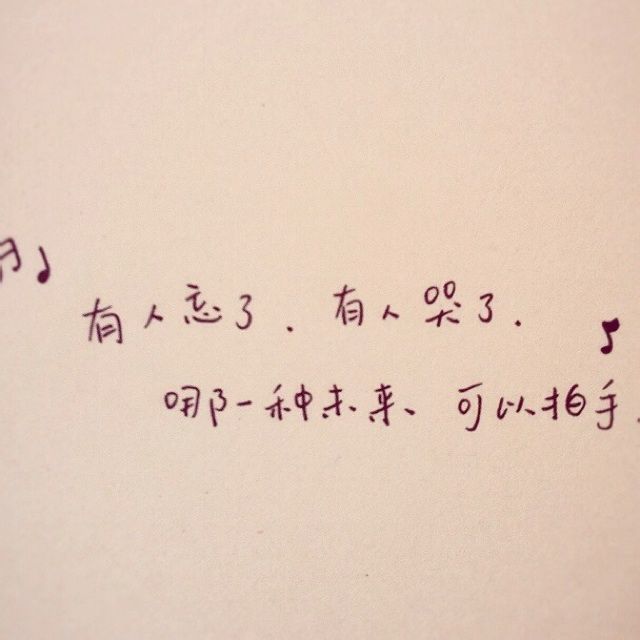 有人忘了. 有人哭了.
哪一种未来、可以拍手